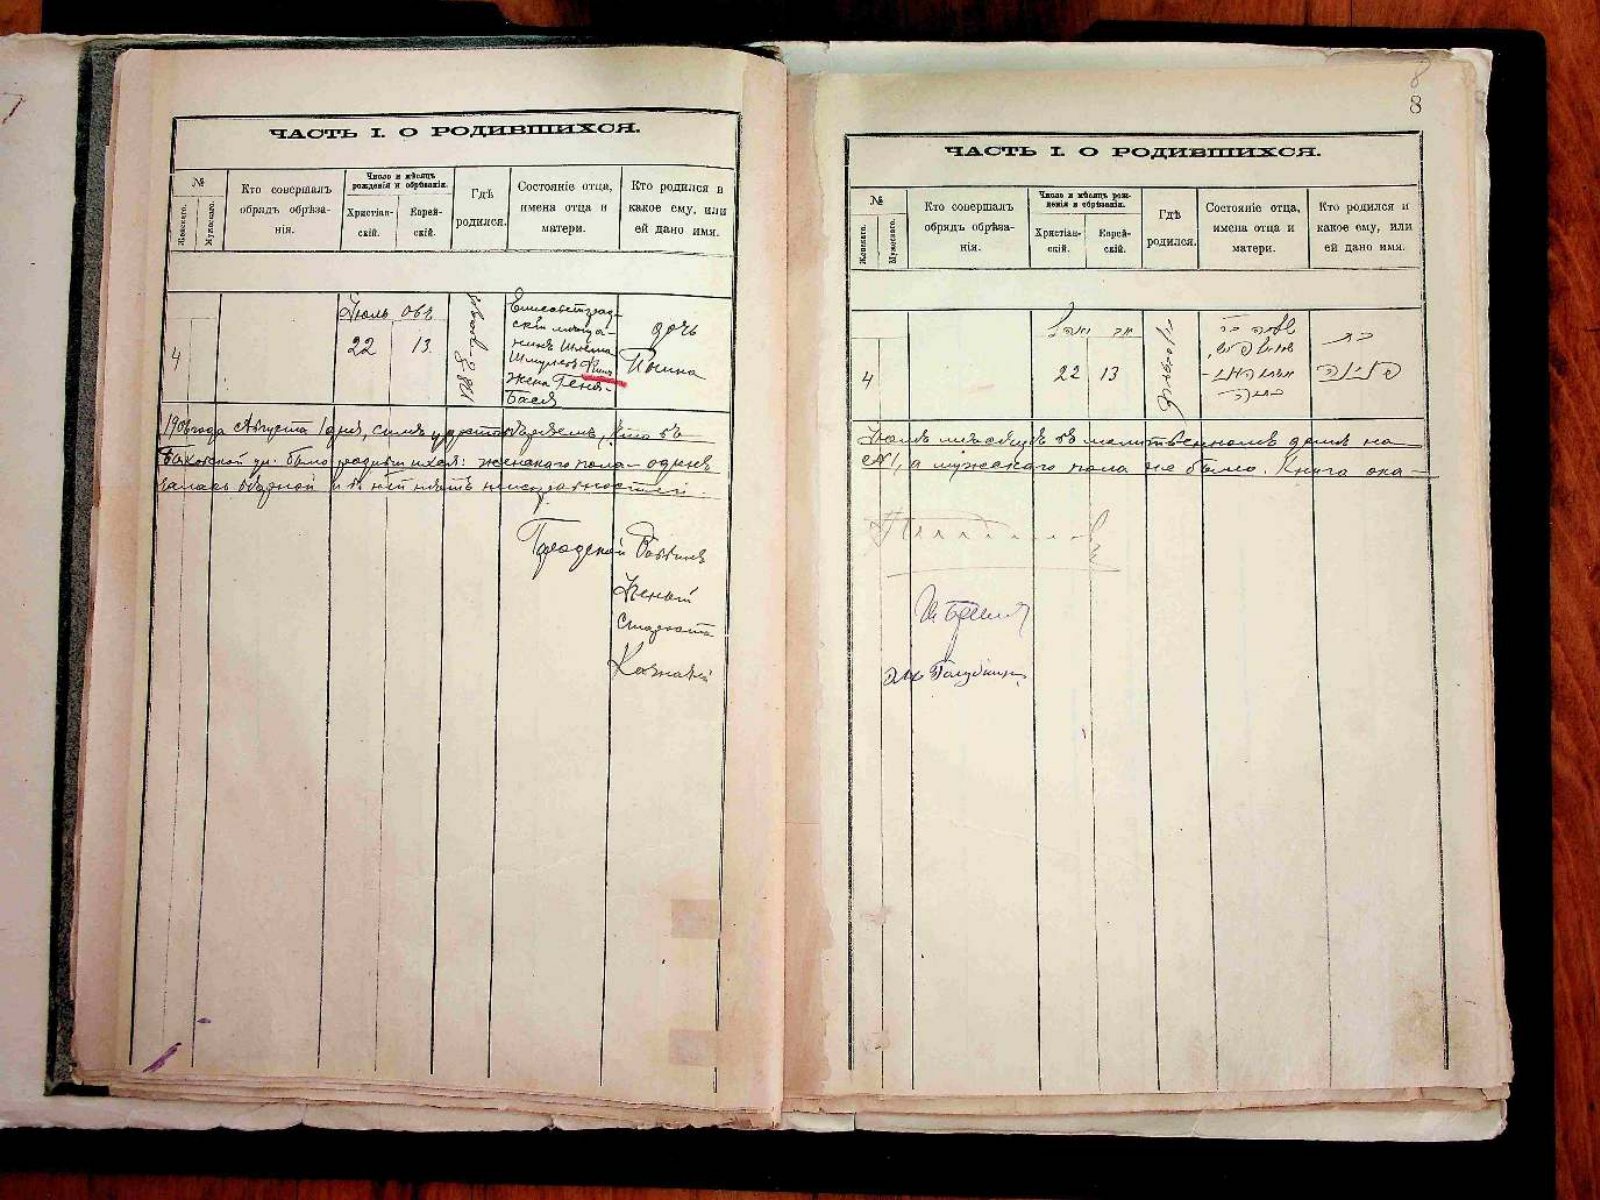 ЧАСТЬ I. О РОДИВШИХСЯ.
№
Женскаго.
Мужскаго.
Кто совершалъ
обрядъ обрѣза-
нія.
Число и мѣсяцъ
рожденія и обрѣзанія.
Христіан-
скій.
Еврей-
скій.
Гдѣ
родился.
Состояніе отца,
имена отца и
матери.
Кто родился и
какое ему, или
ей дано имя.
4
Іюль
22
13
Елисаветград-
скій мѣща-
нинъ Шлема
Шмулевъ
жена Геня-
Бася
дочь
1908 года Августа 1 дня, симъ удостовѣряемъ, что въ
ул. было родившихся: женскаго пола - одинъ
залась вѣрной и въ ней нѣтъ неисправностей.
Городской Раввинъ
Ученый
Староста
Казначей
8
8
ЧАСТЬ I. О РОДИВШИХСЯ.
№
Женскаго.
Мужскаго.
Кто совершалъ
обрядъ обрѣза-
нія.
Число и мѣсяцъ рож-
денія и обрѣзанія.
Христіан-
скій.
Еврей-
скій.
Гдѣ
родился.
Состояніе отца,
имена отца и
матери.
Кто родился и
какое ему, или
ей дано имя.
4
22
13
בת
Іюлѣ мѣсяцѣ въ молитвенномъ домѣ на
№1, а мужскаго пола не было. Книга ока-